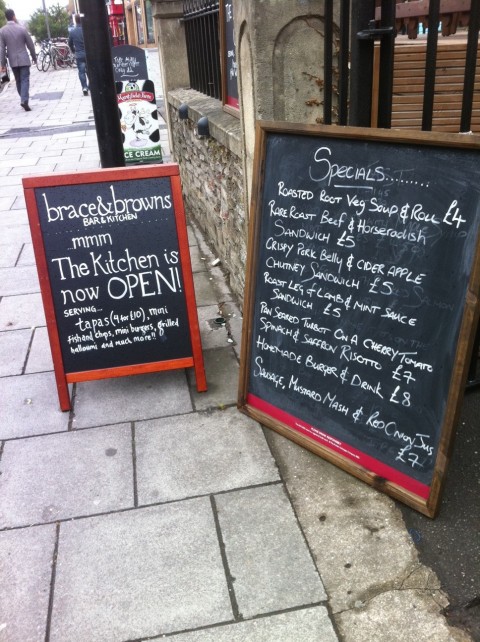 brace&browns
BAR & KITCHEN
mmm
The Kitchen is
now OPEN!
SERVING...
tapas (4 for £10), mini
fish and chips, mini burgers, grilled
halloumi and much more!!
ICE CREAM
Specials.........
Roasted Root Veg Soup & Roll £4
Rare Roast Beef & Horseradish
Sandwich £5
Crispy Pork Belly & Cider Apple
Chutney Sandwich £5
Roast Leg of Lamb & Mint Sauce
Sandwich £5
Pan Seared Turbot On A Cherry Tomato
Spinach & Saffron Risotto £7
Homemade Burger & Drink £8
Sausage, Mustard Mash & Red Onion Jus
£7